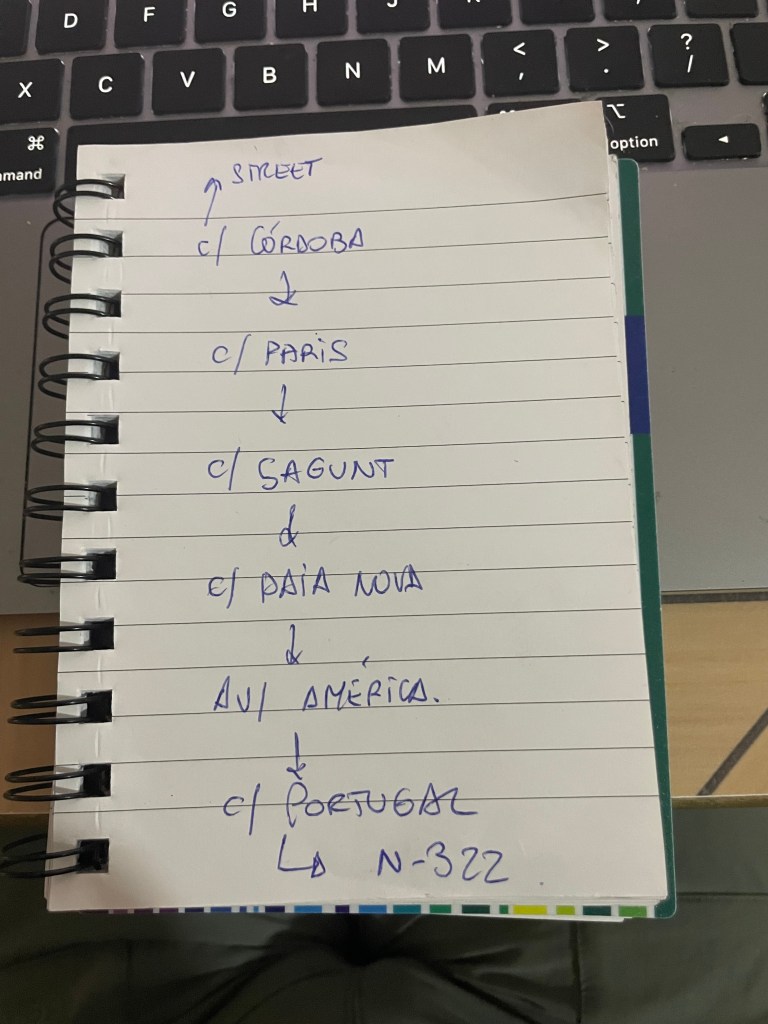 D F G H J K
X C V B N M < , > . ? /
⌘ ⌥
mmand option ◄
↗ STREET
c/ CÓRDOBA
↓
c/ PARIS
↓
c/ SAGUNT
↓
c/ BAIA NOVA
↓
AV/ AMÉRICA.
↓
c/ PORTUGAL
↳ N-322